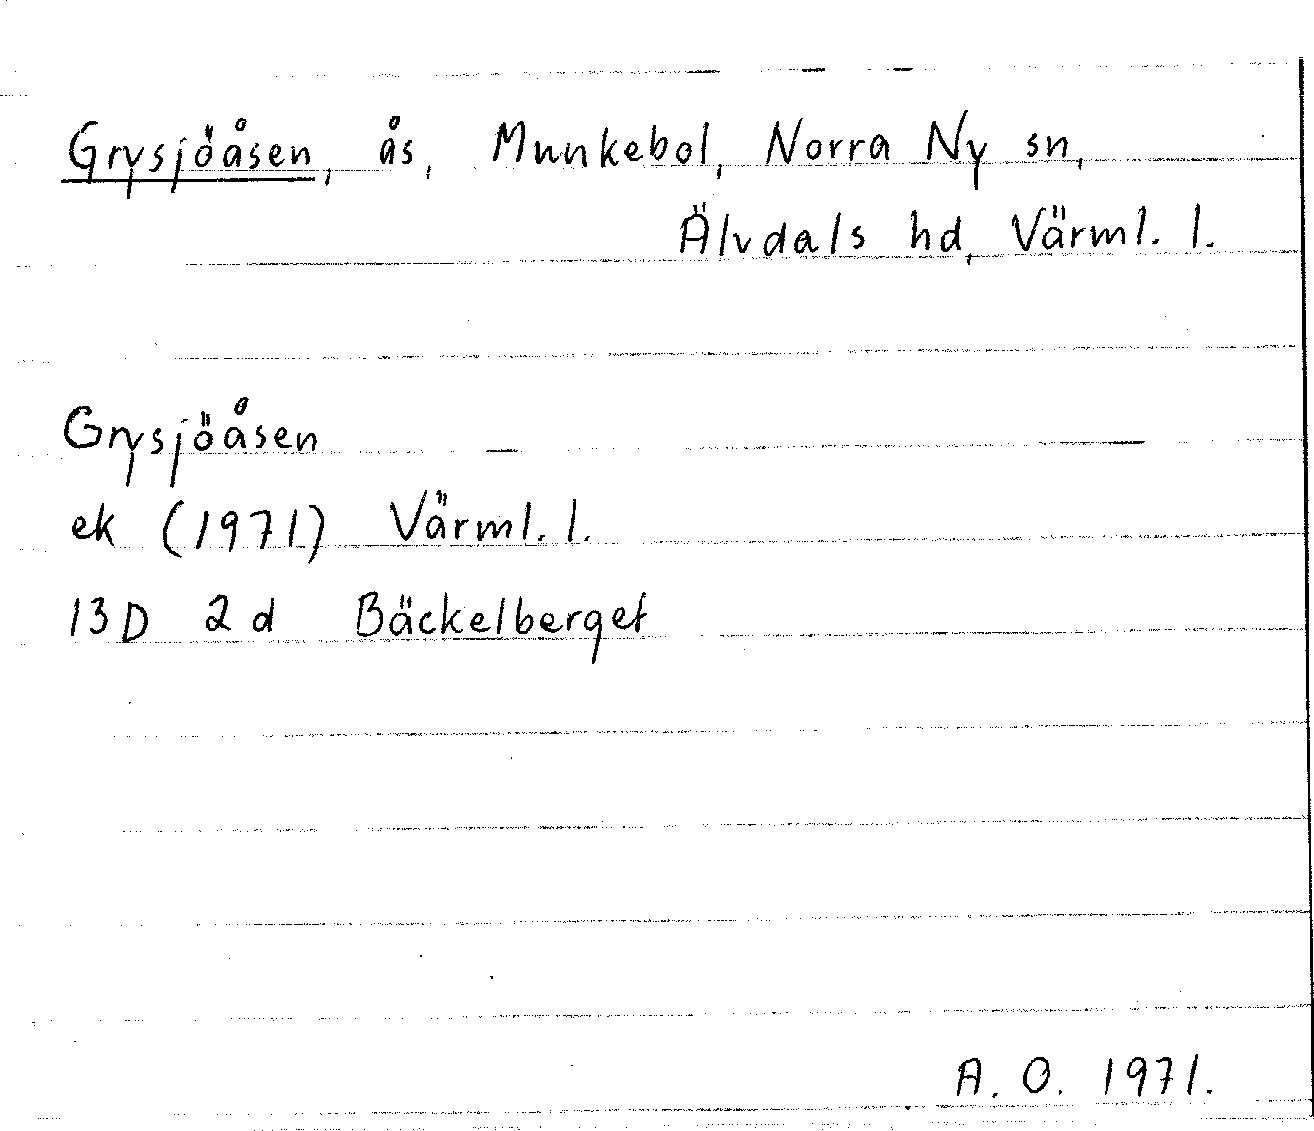 Grysjöåsen, ås, Munkebol, Norra Ny sn,
Älvdals hd, Värml. l.
Grysjöåsen
ek (1971) Värml. l.
13D 2d Bäckelberget
A. O. 1971.